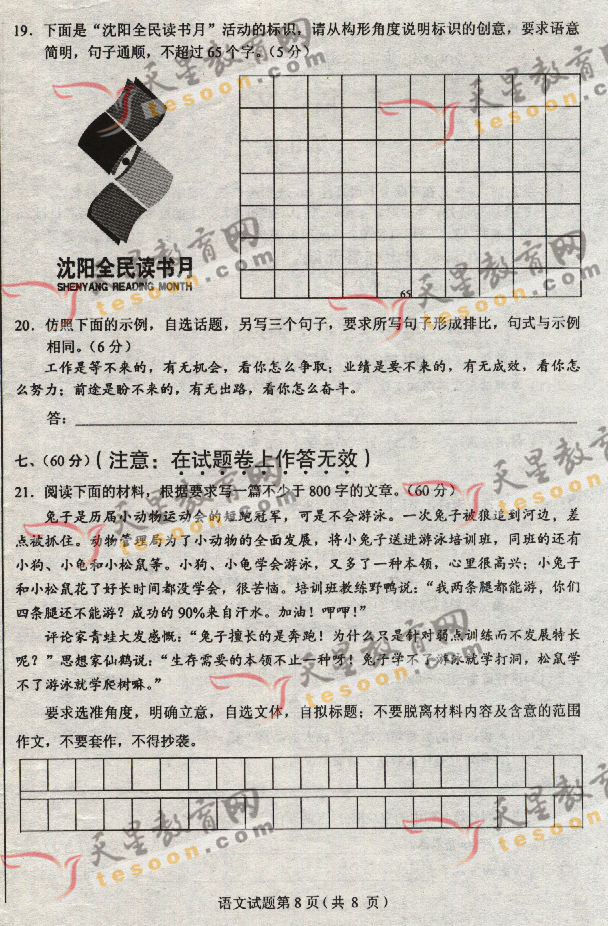 19. 下面是“沈阳全民读书月”活动的标识，请从构形角度说明标识的创意，要求语意
简明，句子通顺，不超过65个字。（5分）
沈阳全民读书月
SHENYANG READING MONTH
65
20. 仿照下面的示例，自选话题，另写三个句子，要求所写句子形成排比，句式与示例
相同。（6分）
工作是等不来的，有无机会，看你怎么争取；业绩是要不来的，有无成效，看你怎
么努力；前途是盼不来的，有无出路，看你怎么奋斗。
答：
七、（60分）（注意：在试题卷上作答无效）
21. 阅读下面的材料，根据要求写一篇不少于800字的文章。（60分）
兔子是历届小动物运动会的短跑冠军，可是不会游泳。一次兔子被狼追到河边，差
点被抓住。动物管理局为了小动物的全面发展，将小兔子送进游泳培训班，同班的还有
小狗、小龟和小松鼠等。小狗、小龟学会游泳，又多了一种本领，心里很高兴；小兔子
和小松鼠花了好长时间都没学会，很苦恼。培训班教练野鸭说：“我两条腿都能游，你们
四条腿还不能游？成功的90%来自汗水。加油！呷呷！”
评论家青蛙大发感慨：“兔子擅长的是奔跑！为什么只是针对弱点训练而不发展特长
呢？”思想家仙鹤说：“生存需要的本领不止一种呀！兔子学不了游泳就学打洞，松鼠学
不了游泳就学爬树嘛。”
要求选准角度，明确立意，自选文体，自拟标题；不要脱离材料内容及含意的范围
作文，不要套作，不得抄袭。
语文试题第8页（共 8 页）
天星教育网
tesoon.com
天星教育网
tesoon.com
天星教育网
tesoon.com
天星教育网
tesoon.com
天星教育网
tesoon.com
天星教育网
tesoon.com
天星教育网
tesoon.com
天星教育网
tesoon.com
天星教育网
tesoon.com